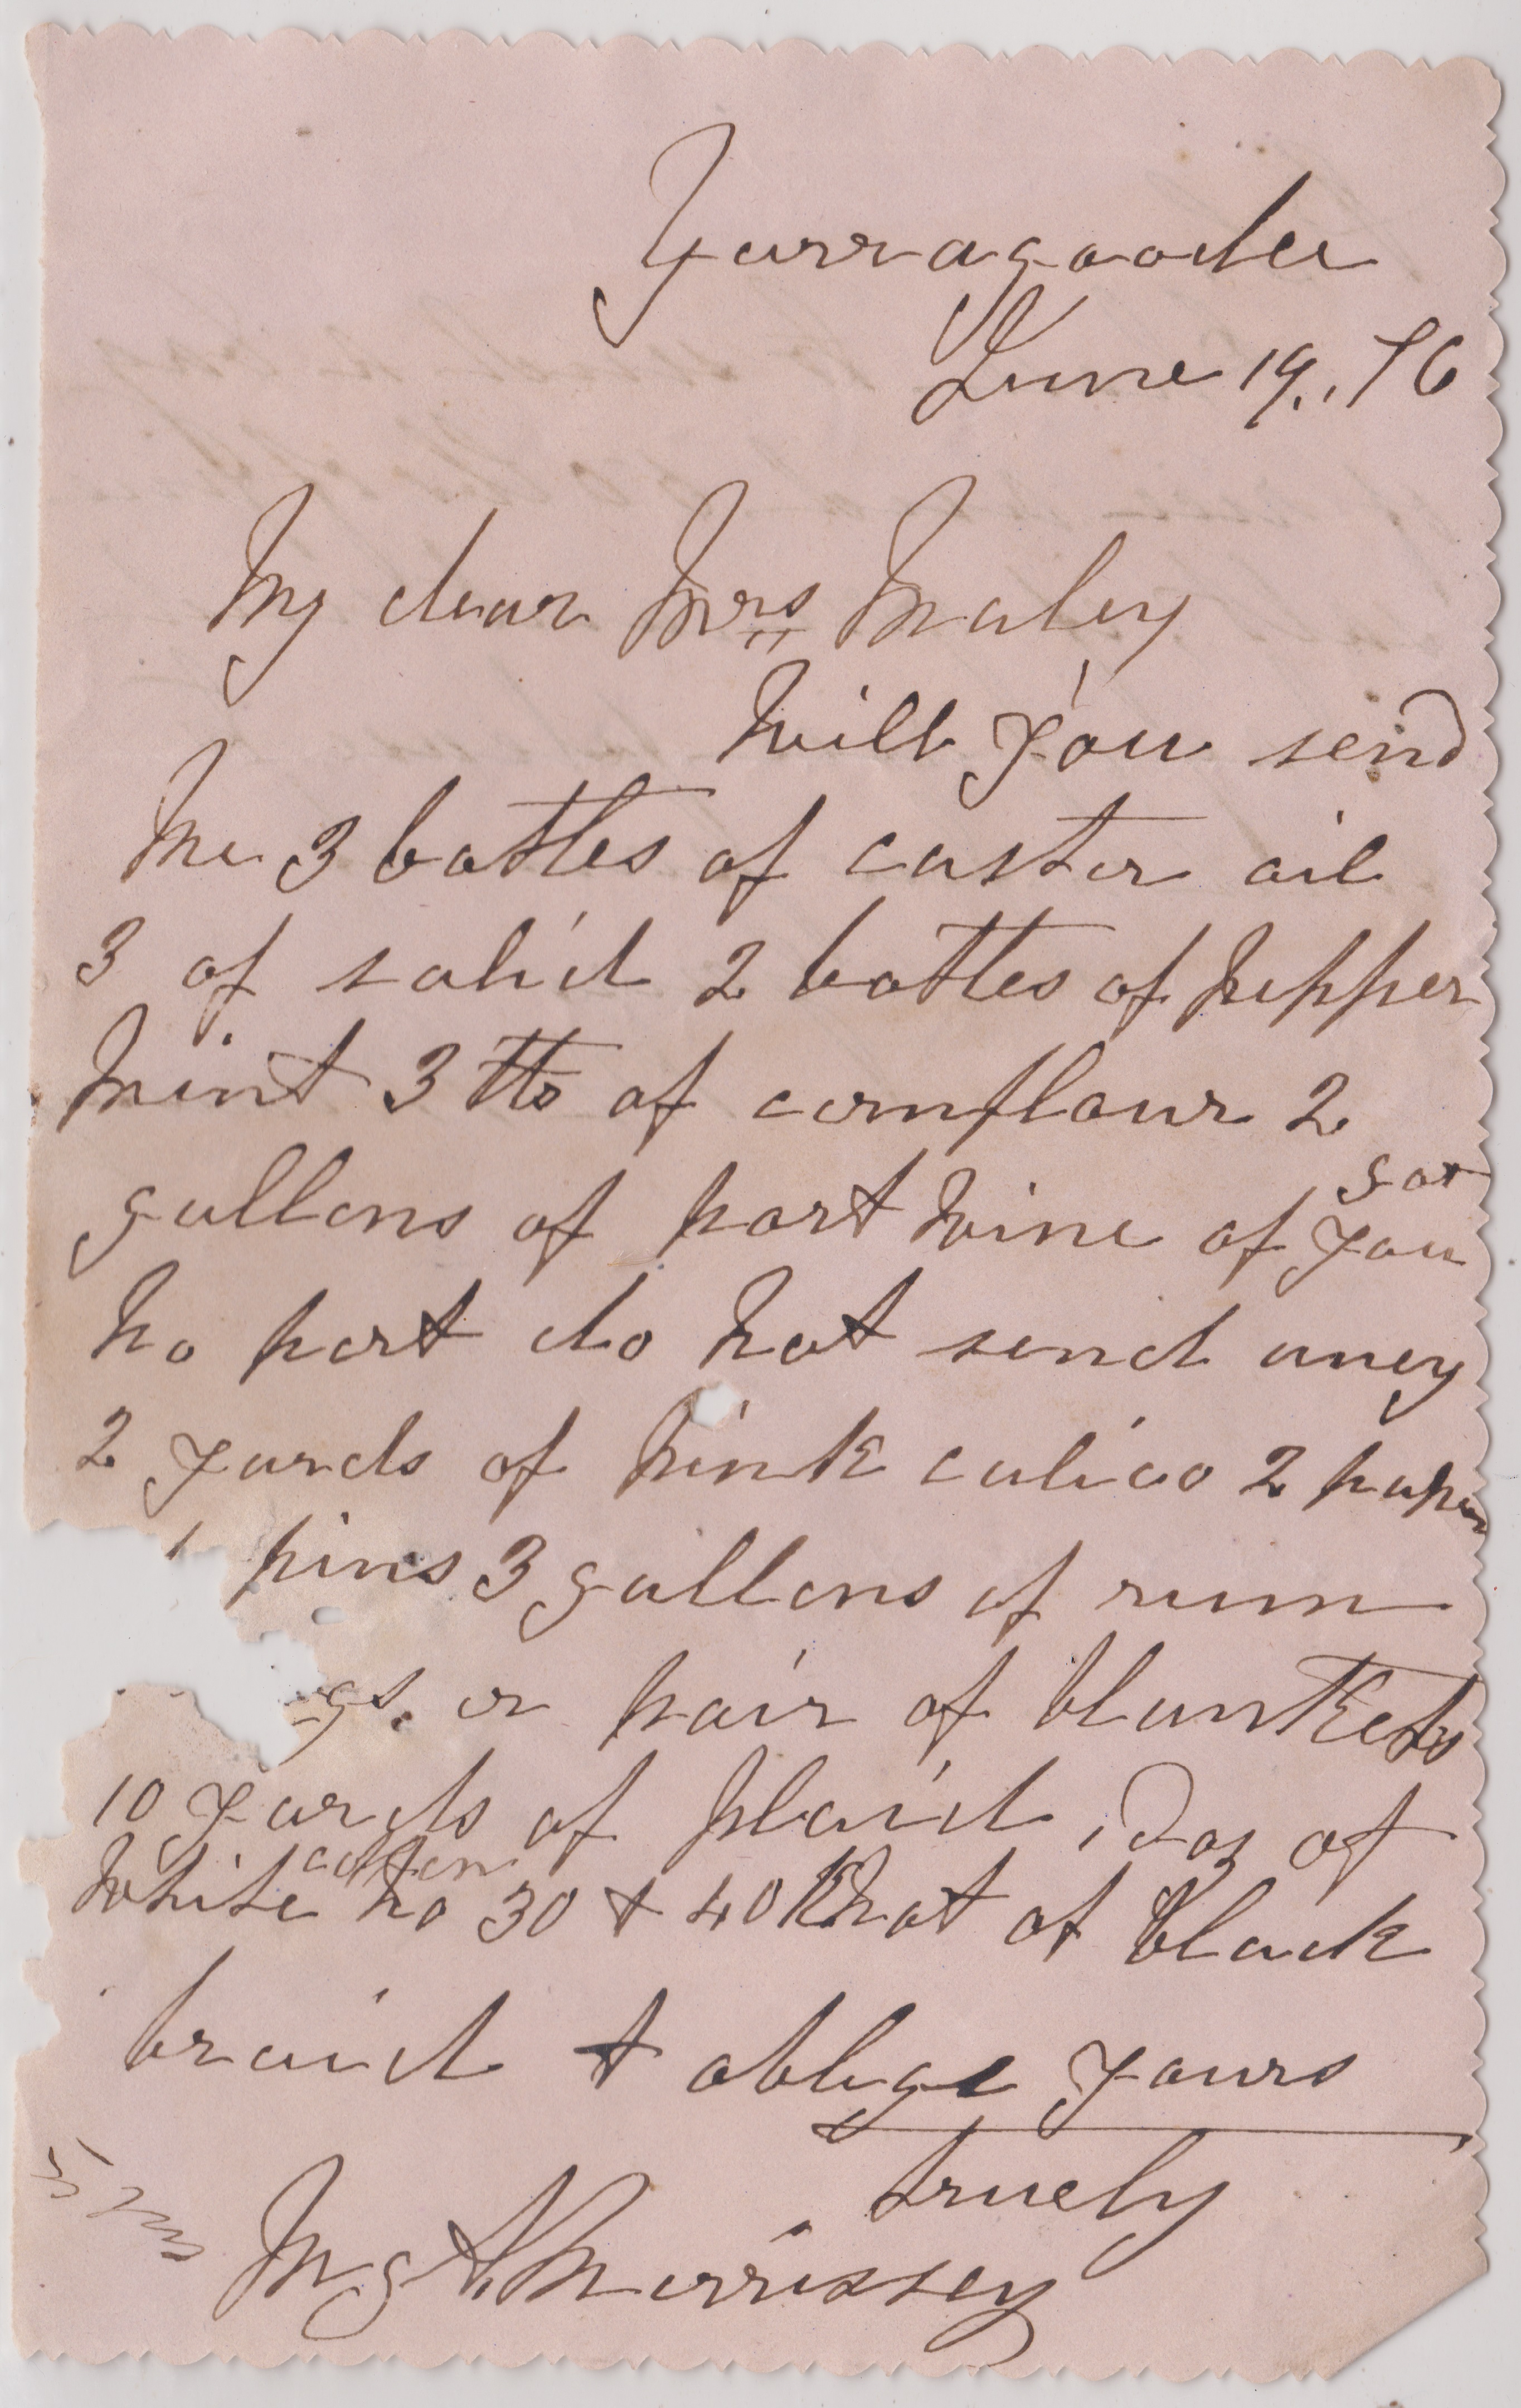 Yarragooda
June 19.. 76
My dear Mrs Maley
Will you send
me 3 bottles of caster oil
3 of salid 2 bottles of pepper
mint 3 lbs of cornflour 2
gallons of port wine of you got
no port do not send aney
2 yards of pink calico 2 paper
pins 3 gallons of rum
gs. or pair of blankets
10 yards of plaid, Doz of
White cotten no 30 & 40 Knot of black
braid & oblige yours
truely
M g A Morrissey